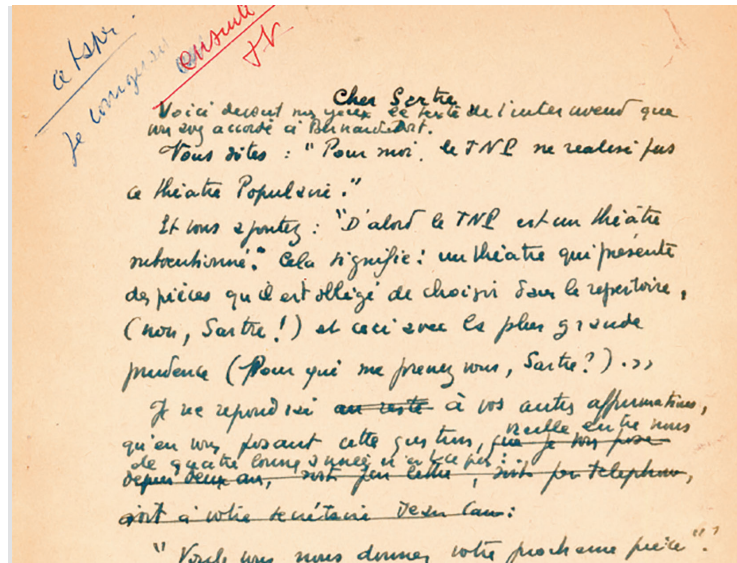 a taper
Je
ensuite
JV
Cher Sartre
Voici devant mes yeux le texte de l'interview que
vous avez accordé à Bernard Dort.
Vous dites : "Pour moi, le TNP ne réalise pas
ce théâtre Populaire."
Et vous ajoutez : "D'abord le TNP est un théâtre
subventionné." Cela signifie : un théâtre qui présente
des pièces qu'il est obligé de choisir dans le répertoire,
(non, Sartre !) et ceci avec la plus grande
prudence (Pour qui me prenez vous, Sartre ?) . »
Je ne répondrai au reste à vos autres affirmations,
qu'en vous posant cette question, vieille entre nous
que je vous pose
de quatre bonnes années n'est-ce pas :
depuis deux ans, soit par lettre, soit par telephone,
soit à votre secrétaire Jean Cau :
"Voulez vous nous donner votre prochaine pièce" ?